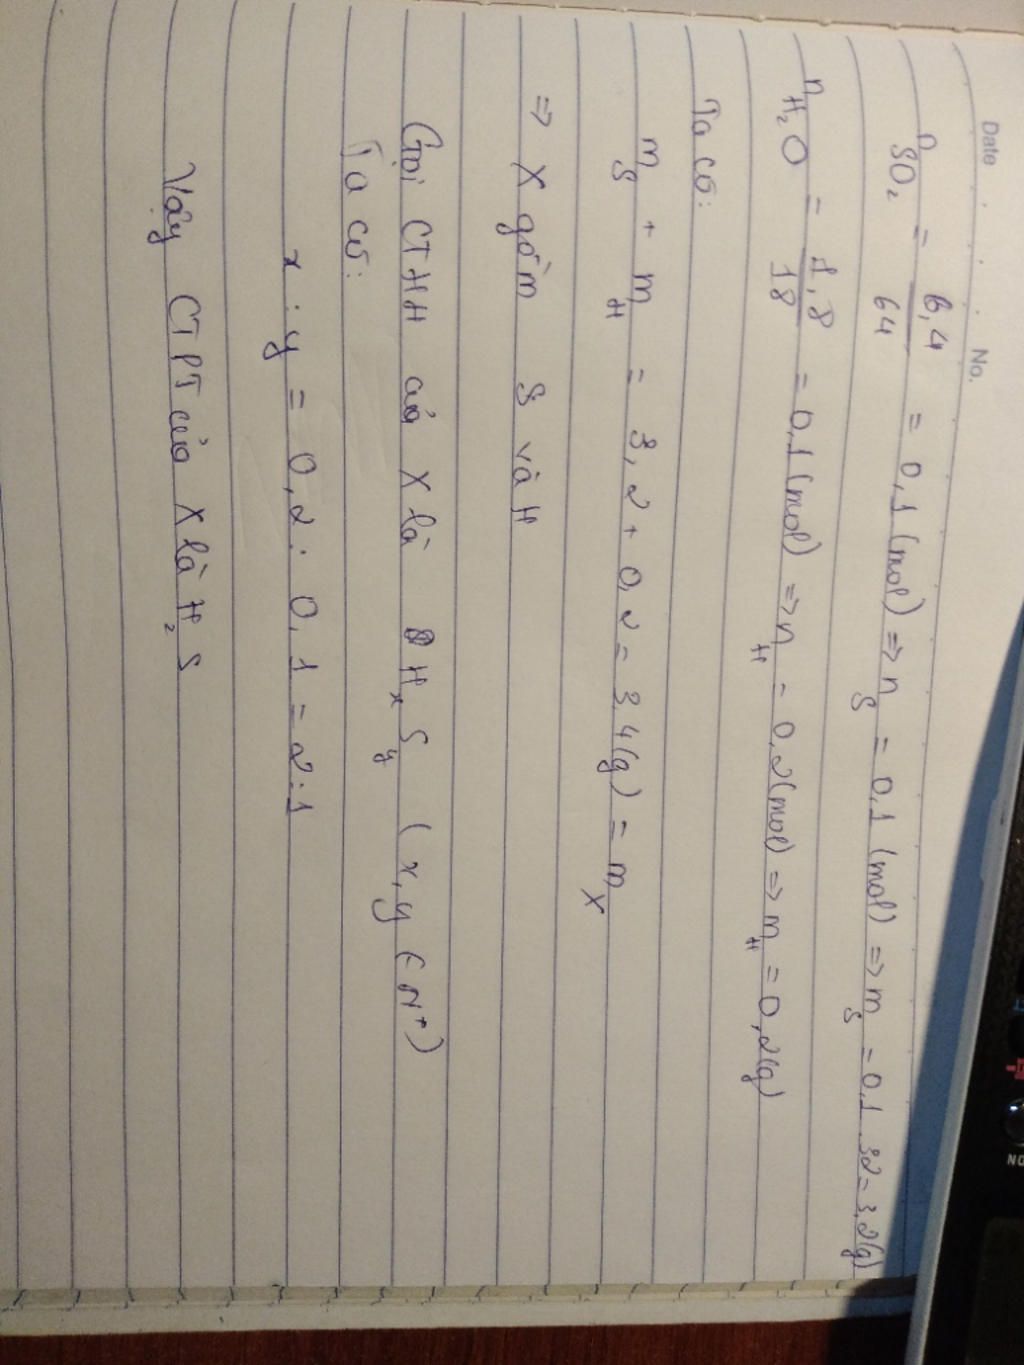 Date No.
n SO₂ = 6,4/64 = 0,1 (mol) => n S = 0,1 (mol) => m S = 0,1 . 32 = 3,2(g)
n H₂O = 1,8/18 = 0,1 (mol) => n H = 0,2 (mol) => m H = 0,2(g)
Ta có:
m S + m H = 3,2 + 0,2 = 3,4(g) = m X
=> X gồm S và H
Gọi CTHH của X là HxSy (x,y ∈ N*)
Ta có:
x : y = 0,2 : 0,1 = 2:1
Vậy CTPT của X là H₂S
NO